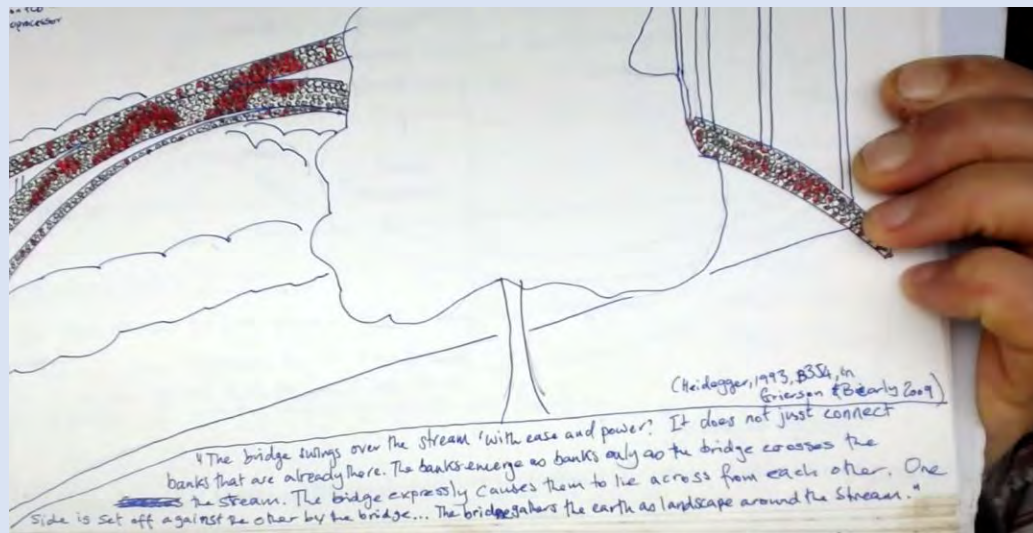 oprocessor
(Heidegger, 1993, P354, in
Grierson & Brearly 2009)
"The bridge swings over the stream 'with ease and power? It does not jusst connect
banks that are already there. The banks emerge as banks only as the bridge crosses the
the stream. The bidge expressly causes them to lie across from each other. One
side is set off against the other by the bridge... The bridge gathers the earth as landscape around the stream."